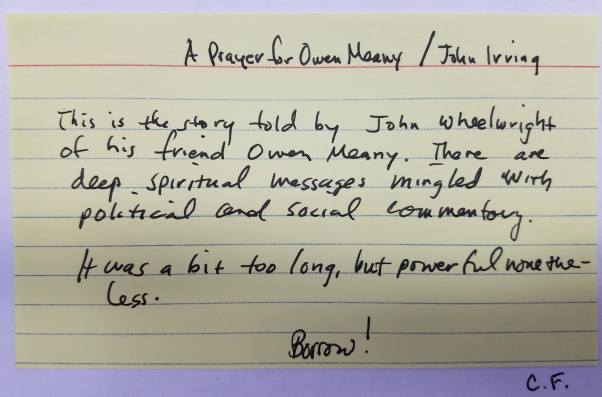 A Prayer for Owen Meany / John Irving
This is the story told by John Wheelwright
of his friend Owen Meany. There are
deep spiritual messages mingled with
political and social commentary.
It was a bit too long, but powerful nonethe-
less.
Borrow!
C.F.